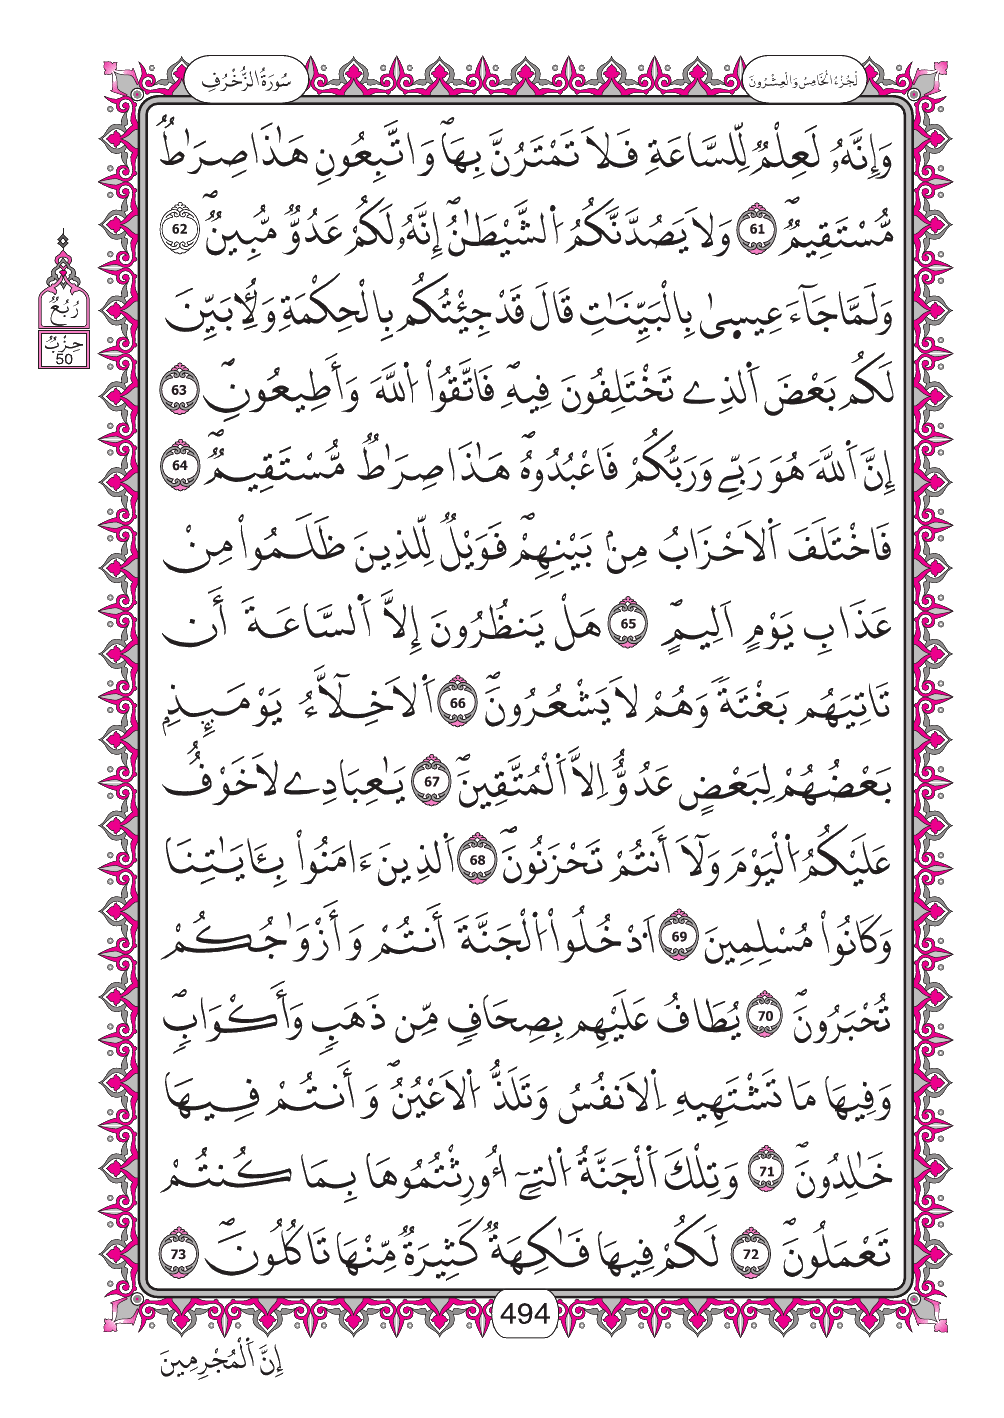 سُورَةُ الزُّخْرُفِ
اَلْجُزْءُ الْخَامِسُ وَالْعِشْرُونَ
وَإِنَّهُۥ لَعِلْمٞ لِّلسَّاعَةِ فَلَا تَمْتَرُنَّ بِهَاۖ وَاتَّبِعُونِ هَٰذَا صِرَٰطٞ
مُّسْتَقِيمٞۖ 61 وَلَا يَصُدَّنَّكُمُ اُ۬لشَّيْطَٰنُۖ إِنَّهُۥ لَكُمْ عَدُوّٞ مُّبِينٞۖ 62
وَلَمَّا جَآءَ عِيسىٰ بِالْبَيِّنَٰتِ قَالَ قَدْ جِئْتُكُم بِالْحِكْمَةِ وَلِأُبَيِّنَ
لَكُم بَعْضَ اَ۬لذِے تَخْتَلِفُونَ فِيهِۖ فَاتَّقُواْ اُ۬للَّهَ وَأَطِيعُونِۖ 63
إِنَّ اَ۬للَّهَ هُوَ رَبِّے وَرَبُّكُمْ فَاعْبُدُوهُۖ هَٰذَا صِرَٰطٞ مُّسْتَقِيمٞۖ 64
فَاخْتَلَفَ اَ۬لَاحْزَابُ مِنۢ بَيْنِهِمْۖ فَوَيْلٞ لِّلذِينَ ظَلَمُواْ مِنْ
عَذَابِ يَوْمٍ اَلِيمٍۖ 65 هَلْ يَنظُرُونَ إِلَّا اَ۬لسَّاعَةَ أَن
تَاتِيَهُم بَغْتَةٗ وَهُمْ لَا يَشْعُرُونَۖ 66 اَ۬لَاخِلَّآءُ يَوْمَئِذِۢ
بَعْضُهُمْ لِبَعْضٍ عَدُوٌّ اِلَّا اَ۬لْمُتَّقِينَۖ 67 يَٰعِبَادِے لَا خَوْفٌ
عَلَيْكُمُ اُ۬لْيَوْمَ وَلَآ أَنتُمْ تَحْزَنُونَۖ 68 اَ۬لذِينَ ءَامَنُواْ بِـَٔايَٰتِنَا
وَكَانُواْ مُسْلِمِينَ 69 اَ۟دْخُلُواْ اُ۬لْجَنَّةَ أَنتُمْ وَأَزْوَٰجُكُمْ
تُحْبَرُونَۖ 70 يُطَافُ عَلَيْهِم بِصِحَافٖ مِّن ذَهَبٖ وَأَكْوَابٖۖ
وَفِيهَا مَا تَشْتَهِيهِ اِ۬لَانفُسُ وَتَلَذُّ اُ۬لَاعْيُنُۖ وَأَنتُمْ فِيهَا
خَٰلِدُونَۖ 71 وَتِلْكَ اَ۬لْجَنَّةُ اُ۬لتِےٓ أُورِثْتُمُوهَا بِمَا كُنتُمْ
تَعْمَلُونَۖ 72 لَكُمْ فِيهَا فَٰكِهَةٞ كَثِيرَةٞ مِّنْهَا تَاكُلُونَۖ 73
رُبُعُ
حِزْبُ
50
494
إِنَّ اَ۬لْمُجْرِمِينَ